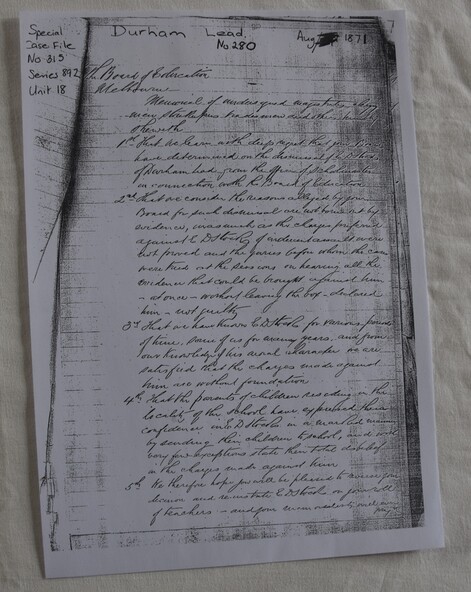 Special
Case File
No 315
Series 892
Unit 18
Durham Lead.
No 280
Aug 1871
Board of Education
Melbourne
Memorial of undersigned magistrates clergy
many and others
1st That we learn with deep regret that you
have determined on the dismissal of E D Stooke
of Durham Lead from the office of Schoolmaster
in connection with the Board of Education
2nd That we consider the reasons alleged by your
Board for such dismissal are not borne out by
evidence, inasmuch as the charges preferred
against E D Stooke of indecent assault were
not proved and the juries before whom the case
were tried at the sessions on hearing all the
evidence that could be brought against him
- at once - without leaving the box - declared
him - not guilty
3rd That we have known E D Stooke for various periods
of time, some of us for many years, and from
our knowledge of his moral character we are
satisfied that the charges made against
him are without foundation
4th That the parents of children residing in the
locality of the school have expressed their
confidence in E D Stooke in a marked manner
by sending their children to school, and with
very few exceptions state their total disbelief
in the charges made against him
5th We therefore hope you will be pleased to
decision and reinstate E D Stooke on your
of teachers - and your memorialists will ever
pray